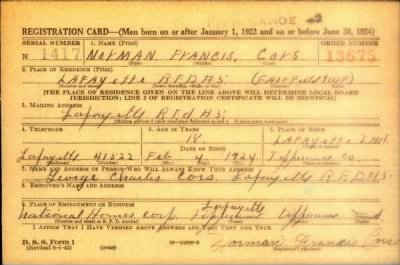 REGISTRATION CARD—(Men born on or after January 1, 1922 and on or before June 30, 1924)
SERIAL NUMBER 1. NAME (Print) ORDER NUMBER
N 1417 NORMAN FRANCIS, CORS 13675
(First) (Middle) (Last)
2. PLACE OF RESIDENCE (Print)
LAFAYETTE R.F.D.#5
(THE PLACE OF RESIDENCE GIVEN ON THE LINE ABOVE WILL DETERMINE LOCAL BOARD
JURISDICTION; LINE 2 OF REGISTRATION CERTIFICATE WILL BE IDENTICAL)
3. MAILING ADDRESS
Lafayette R.F.D.#5
4. TELEPHONE 5. AGE IN YEARS 6. PLACE OF BIRTH
18 LAFAYETTE
Lafayette 41522 Feb 4 1924 Tippecanoe Co.
7. NAME AND ADDRESS OF PERSON WHO WILL ALWAYS KNOW YOUR ADDRESS
George Charles Cors. Lafayette R.F.D.#5
8. EMPLOYER'S NAME AND ADDRESS
9. PLACE OF EMPLOYMENT OR BUSINESS Lafayette
National Homes Corp. Tippecanoe
I AFFIRM THAT I HAVE VERIFIED ABOVE ANSWERS AND THAT THEY ARE TRUE.
D. S. S. Form 1
(Revised 6-1-42) (over)
Norman Francis Cors